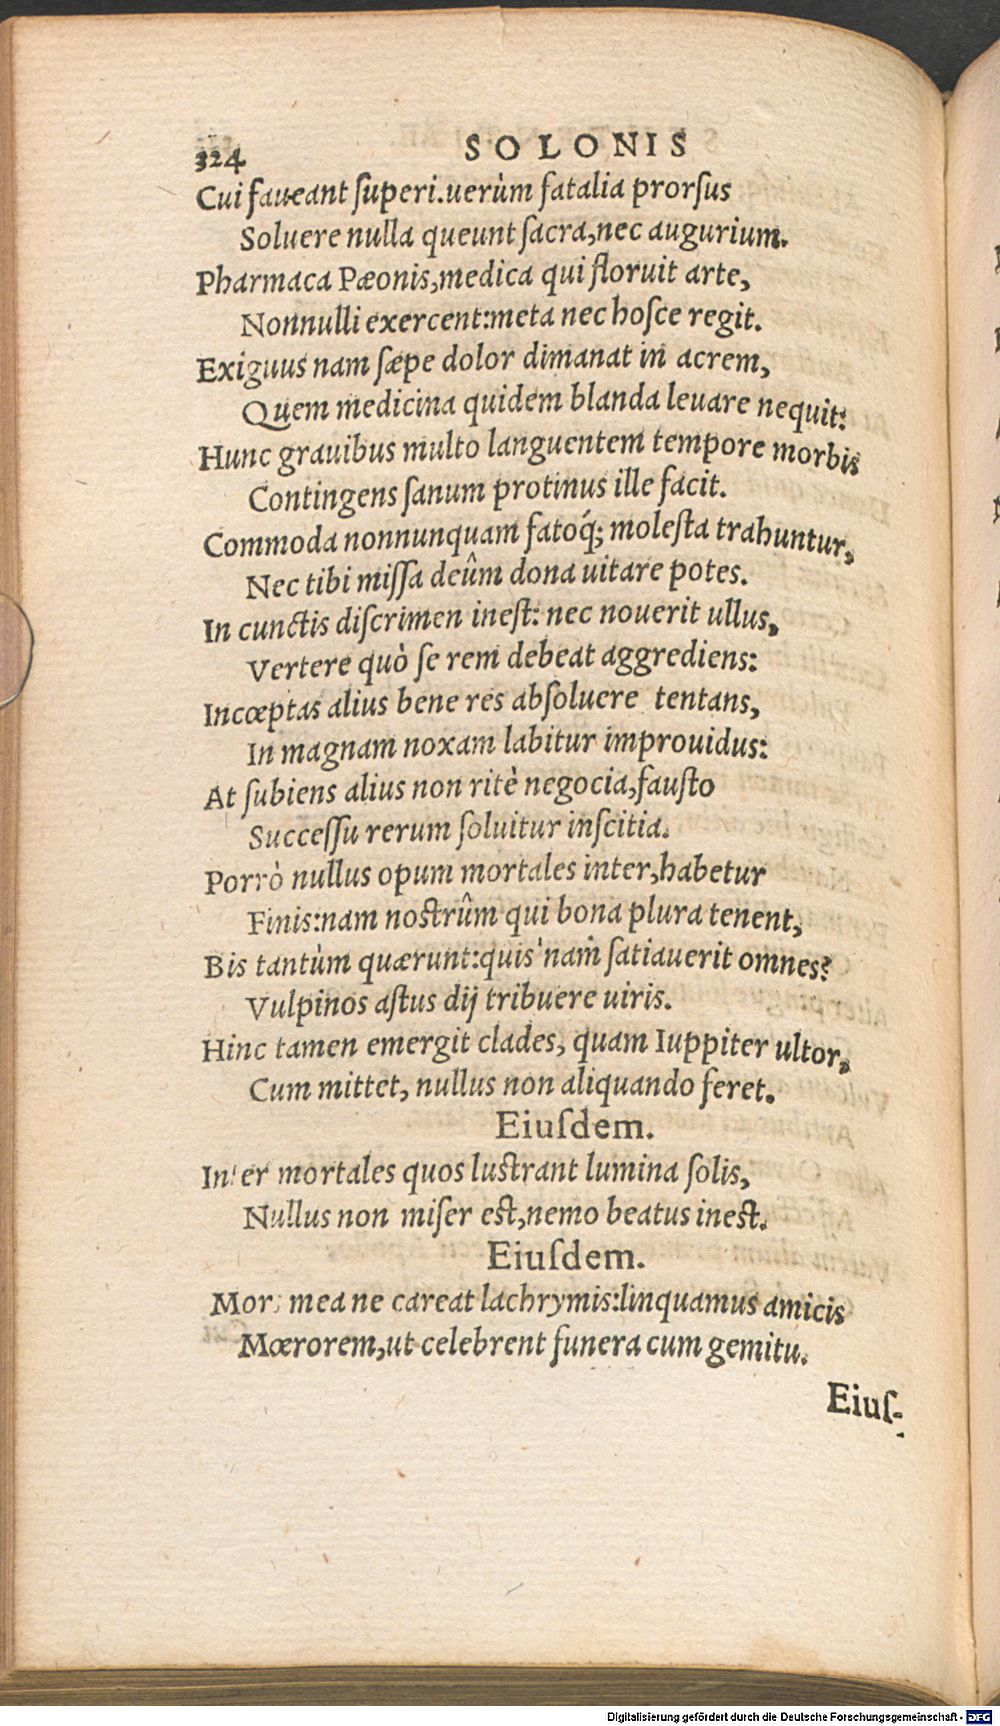 324 SOLONIS
Cui faueant ſuperi.uerùm fatalia prorſus
Soluere nulla queunt ſacra,nec augurium.
Pharmaca Pæonis,medica qui floruit arte,
Nonnulli exercent:meta nec hoſce regit.
Exiguus nam ſæpe dolor dimanat in acrem,
Quem medicina quidem blanda leuare nequit:
Hunc grauibus multo languentem tempore morbis
Contingens ſanum protinus ille facit.
Commoda nonnunquam fatoq́; moleſta trahuntur,
Nec tibi miſſa deûm dona uitare potes.
In cunctis diſcrimen ineſt: nec nouerit ullus,
Vertere quò ſe rem debeat aggrediens:
Incœptas alius bene res abſoluere tentans,
In magnam noxam labitur improuidus:
At ſubiens alius non ritè negocia,fauſto
Succeſſu rerum ſoluitur inſcitia.
Porrò nullus opum mortales inter,habetur
Finis:nam noſtrûm qui bona plura tenent,
Bis tantùm quærunt:quis'nam ſatiauerit omnes?
Vulpinos aſtus dij tribuere uiris.
Hinc tamen emergit clades, quam Iuppiter ultor,
Cum mittet, nullus non aliquando feret.
Eiuſdem.
Inter mortales quos luſtrant lumina ſolis,
Nullus non miſer eſt,nemo beatus ineſt.
Eiuſdem.
Mors mea ne careat lachrymis:linquamus amicis
Mœrorem,ut celebrent funera cum gemitu.
Eiuſ-
Digitalisierung gefördert durch die Deutsche Forschungsgemeinschaft - DFG